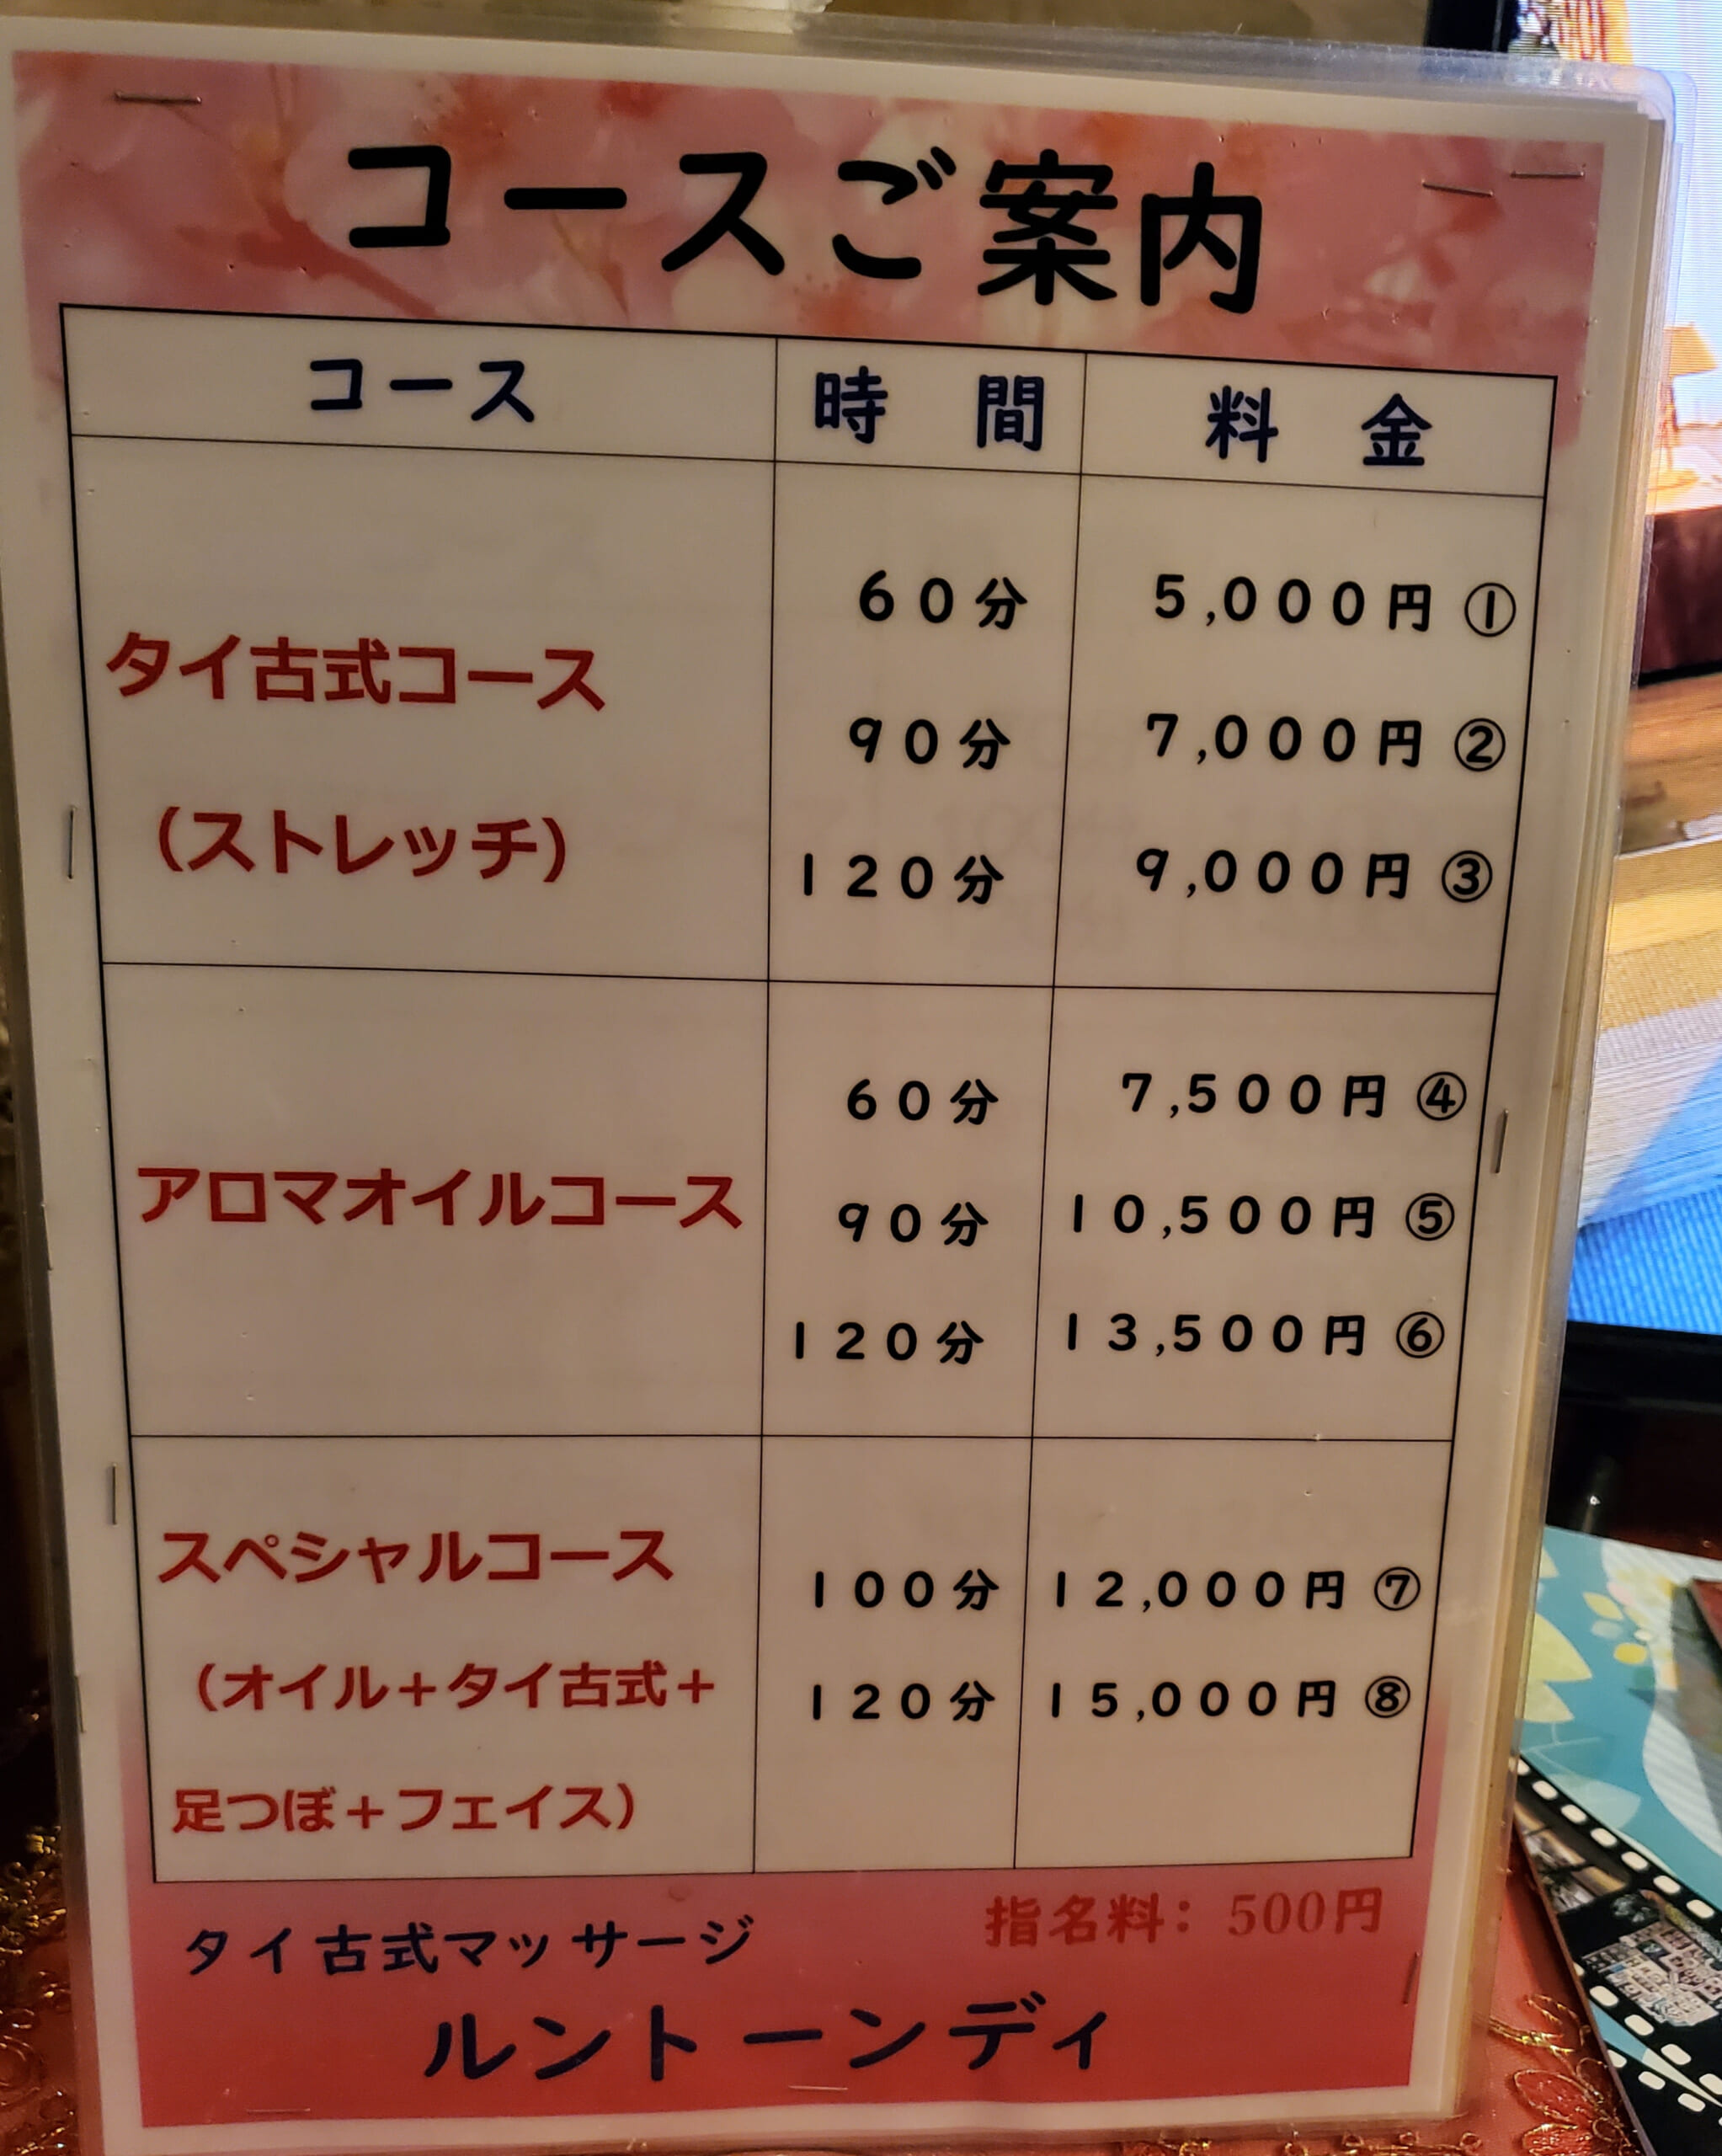 コースご案内
コース 時 間 料 金
タイ古式コース
(ストレッチ)
60分 5,000円 ①
90分 7,000円 ②
120分 9,000円 ③
アロマオイルコース
60分 7,500円 ④
90分 10,500円 ⑤
120分 13,500円 ⑥
スペシャルコース
(オイル+タイ古式+
足つぼ+フェイス)
100分 12,000円 ⑦
120分 15,000円 ⑧
指名料: 500円
タイ古式マッサージ
ルントーンディ